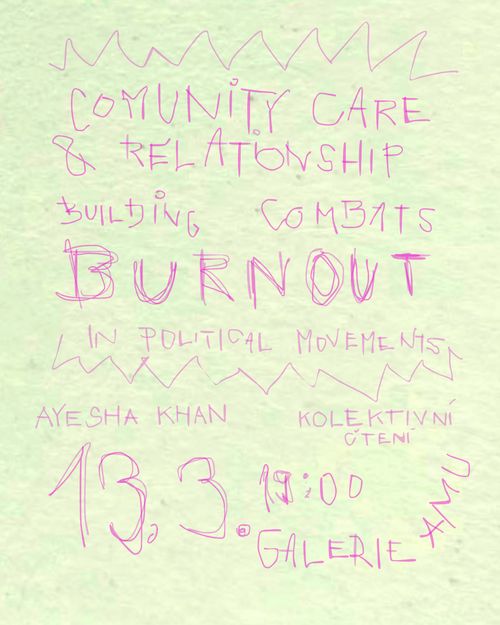 COMUNITY CARE
& RELATIONSHIP
BUILDING COMBATS
BURNOUT
IN POLITICAL MOVEMENTS
AYESHA KHAN KOLEKTIVNÍ
ČTENÍ
13. 3. 19:00
GALERIE AMU